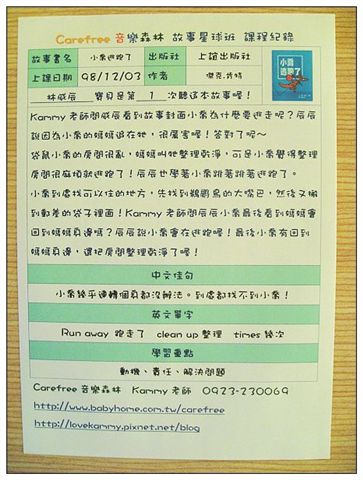 Carefree 音樂森林 故事星球班 課程紀錄
故事書名 小乖逃跑了 出版社 上誼出版社
上課日期 98/12/03 作者 傑克.肯特
小乖
逃跑了
林宸辰 寶貝是第 1 次聽這本故事喔！
Kammy 老師問宸辰看到故事封面小乖為什麼要逃走呢？辰辰
說因為小乖的媽媽追在牠，很厲害喔！答對了呢～
袋鼠小乖的房間很亂，媽媽叫牠整理乾淨，可是小乖覺得整理
房間很麻煩就逃跑了！辰辰也學著小乖跳著跳著逃跑了。
小乖到處找可以住的地方，先找到鵜鶘鳥的大嘴巴，然後又搬
到郵差的袋子裡面！Kammy 老師問辰辰小乖最後看到媽媽會
回到媽媽身邊嗎？辰辰說小乖會在逃跑喔！最後小乖有回到
媽媽身邊，還把房間整理乾淨了喔！
中文佳句
小乖幾乎連轉個身都沒辦法。到處都找不到小乖！
英文單字
Run away 跑走了 clean up 整理 times 幾次
學習重點
動機、責任、解決問題
Carefree 音樂森林 Kammy 老師 0923-230069
http://www.babyhome.com.tw/carefree
http://lovekammy.pixnet.net/blog